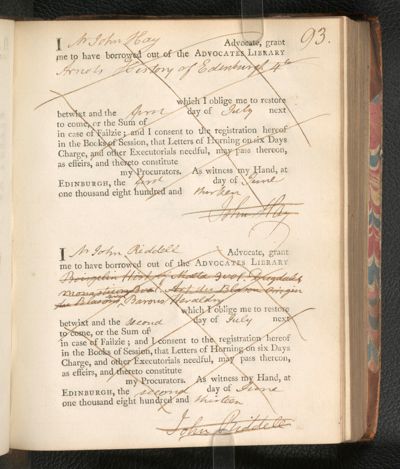 93.
I Mr John Hay Advocate, grant
me to have borrowed out of the ADVOCATES LIBRARY
Arnots History of Edenburgh 4to
which I oblige me to restore
betwixt and the first day of July next
to come, or the Sum of
in case of Failzie; and I consent to the registration hereof
in the Books of Session, that Letters of Horning on six Days
Charge, and other Executorials needful, may pass thereon,
as effeirs, and thereto constitute
my Procurators. As witness my Hand, at
EDINBURGH, the first day of June
one thousand eight hundred and thirteen
John Hay
I Mr John Riddell Advocate, grant
me to have borrowed out of the ADVOCATES LIBRARY
Hist of 3 vol
Barons Heraldry
which I oblige me to restore
betwixt and the second day of July next
to come, or the Sum of
in case of Failzie; and I consent to the registration hereof
in the Books of Session, that Letters of Horning on six Days
Charge, and other Executorials needful, may pass thereon,
as effeirs, and thereto constitute
my Procurators. As witness my Hand, at
EDINBURGH, the second day of June
one thousand eight hundred and thirteen
John Riddell